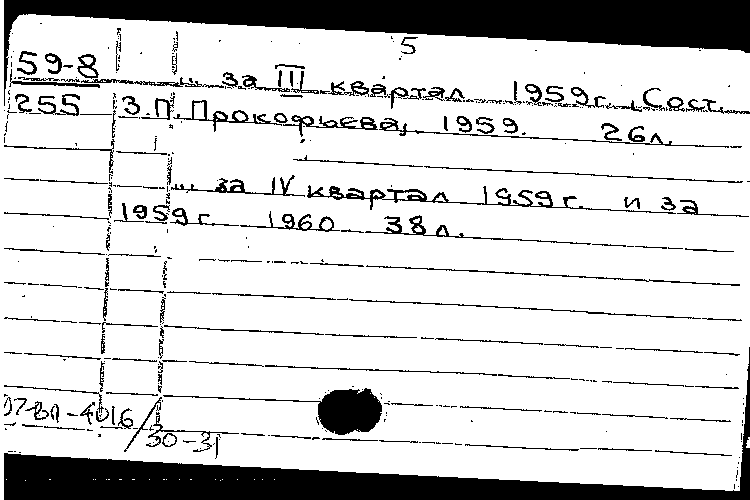 5
59-8
255
... за III квартал 1959г., Сост.
З.П. Прокофьева, 1959. 26л.
... за IV квартал 1959г. и за
1959г. 1960 38л.
07-вл-4016/30-31